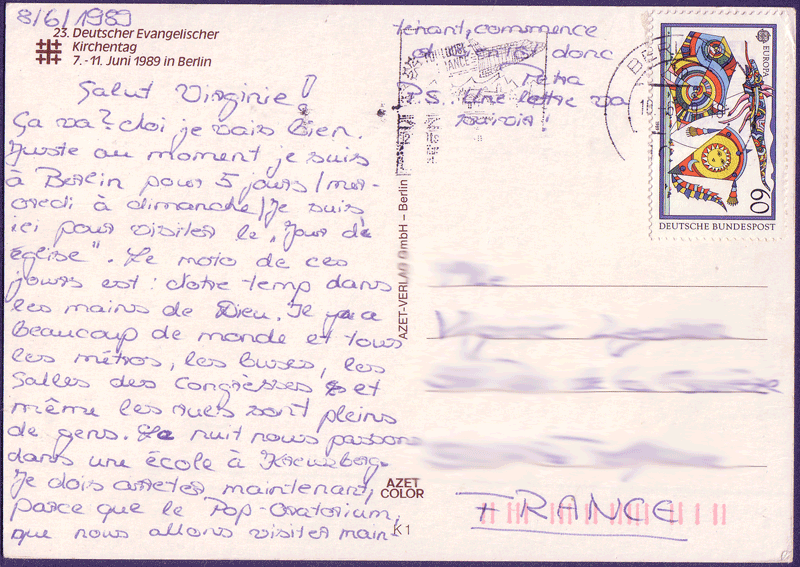 8/6/1989
23. Deutscher Evangelischer
Kirchentag
7.-11. Juni 1989 in Berlin
Salut Virginie!
Ça va? Moi je vais bien.
Juste au moment je suis
à Berlin pour 5 jours (mer-
credi à dimanche) Je suis
ici pour visiter le "Jour de
Église". Le moto de ces
jours est: Notre temp dans
les mains de Dieu. Il y a
beaucoup de monde et tous
les métros, les buses, les
Salles des Congrèsses et
même les rues sont pleins
de gens. La nuit nous passons
dans une école à Kreuzberg.
Je dois arreter maintenant,
parce que le Pop-Oratorium,
que nous allons visiter main-
tenant, commence
donc
Petra
P.S. Une lettre va
suivre!
AZET-VERLAG GmbH – Berlin
AZET
COLOR
K1
BERLIN
EUROPA
60
DEUTSCHE BUNDESPOST
FRANCE